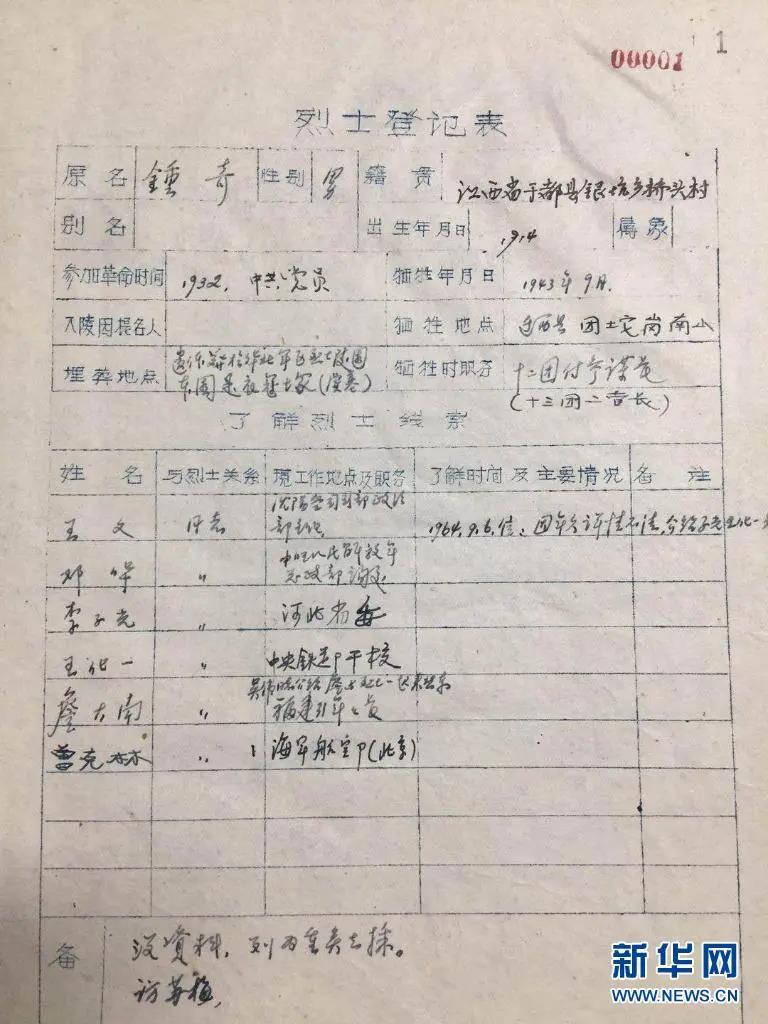 00001 1
烈士登记表
原名 鍾奇 性别 男 籍贯 江西省于都县银坑乡桥头村
别名 出生年月日 1914 属象
参加革命时间 1932. 中共党员 牺牲年月日 1943年9月.
入陵园提名人 牺牲地点 迁西县 团土宅岗南山
埋葬地点 军区烈士陵园 牺牲时职务 十二团付参谋长
(十三团二营长)
了解烈士线索
姓名 与烈士关系 现工作地点及职务 了解时间及主要情况 备注
王文 同志 沈阳空司司部政治
部 1964.9.6.信:
邓 〃 中国人民解放军
总政部
李子光 〃 河北省委
王化一 〃 中央铁道P干校
詹大南 〃 福建31军
曾克林 〃 海军航空P(北京)
备 没资料,列为
访苏梅,
新华网
WWW.NEWS.CN